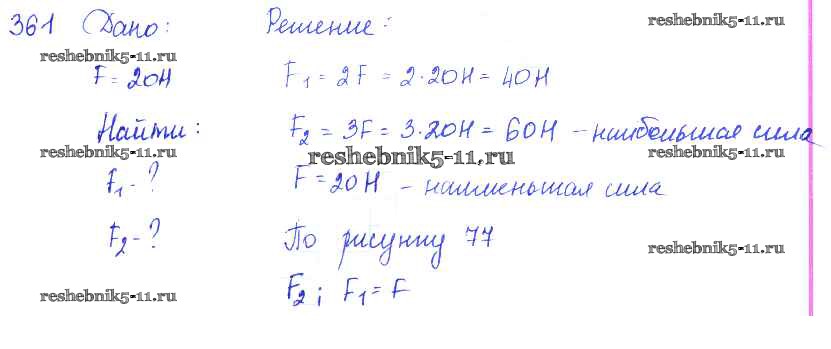 361 Дано: Решение:
reshebnik5-11.ru
reshebnik5-11.ru
F = 20Н F₁ = 2F = 2·20Н = 40Н
Найти: F₂ = 3F = 3·20Н = 60Н – наибольшая сила
reshebnik5-11.ru reshebnik5-11.ru reshebnik5-11.ru
F₁ - ? F = 20Н – наименьшая сила
F₂ - ? По рисунку 77
reshebnik5-11.ru
F₂ ; F₁ = F
reshebnik5-11.ru reshebnik5-11.ru